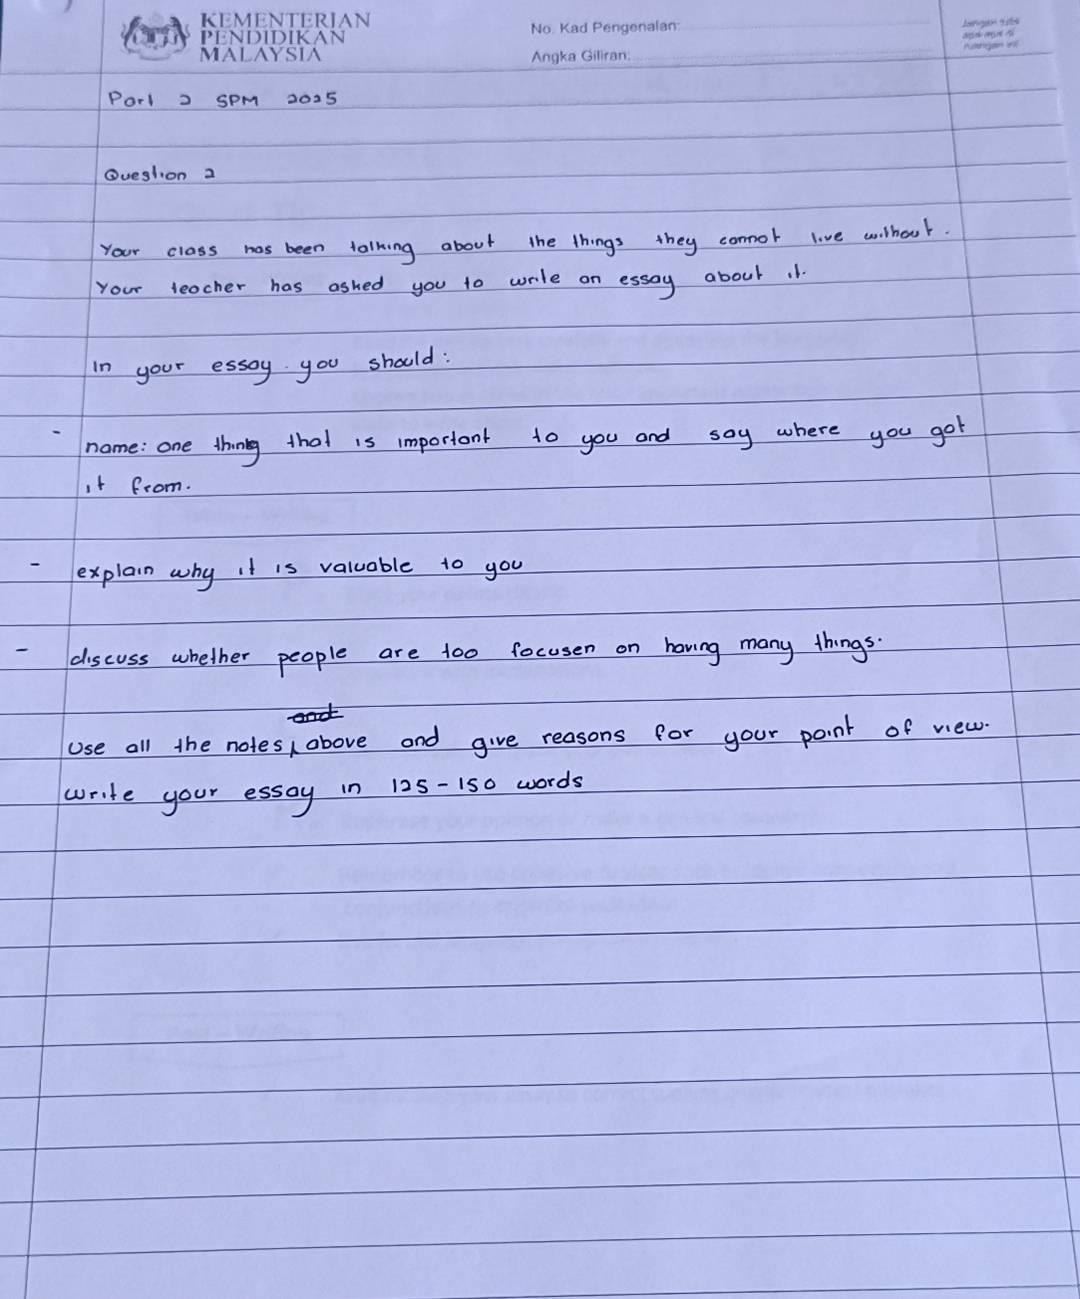 KEMENTERIAN
PENDIDIKAN
MALAYSIA
No. Kad Pengenalan:
Angka Giliran:
Jangan tulis
apa-apa di
ruangan ini
Part 2 SPM 2025
Question 2
Your class has been talking about the things they cannot live without.
Your teacher has asked you to write an essay about it.
In your essay. you should:
- name: one thing that is important to you and say where you got
it from.
- explain why it is valuable to you
- discuss whether people are too focusen on having many things.
and
Use all the notes, above and give reasons for your point of view.
Write your essay in 125-150 words